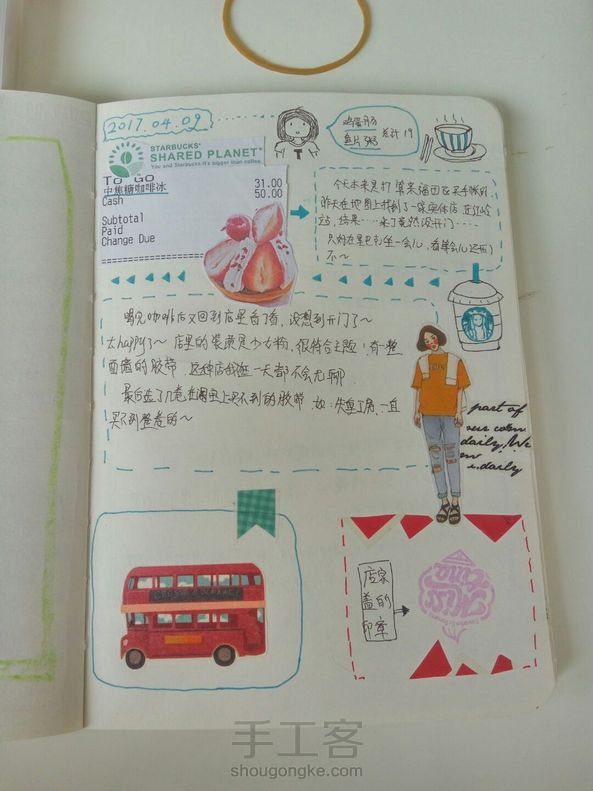 2017.04.09
STARBUCKS®
SHARED PLANET™
You and Starbucks. It's bigger than coffee.
TO GO
中焦糖咖啡冰
31.00
Cash 50.00
Subtotal
Paid
Change Due
总计 19
今天本来是打算来福田区买手账的
昨天在地图上找到了一家实体店
结果……来了竟然没开门……
只好在星巴克坐一会儿,看等会儿还开门
不~
喝完咖啡后又回到店里看了看,没想到开门了~
太happy了~ 店里的装潢是少女粉,很符合主题!有一整
面墙的胶带,这种店我逛一天都不会无聊
最后拼了几卷在网上买不到的胶带,如:
买不到整卷的~
part of
daily.
daily
店家
盖的
印章
手工客
shougongke.com